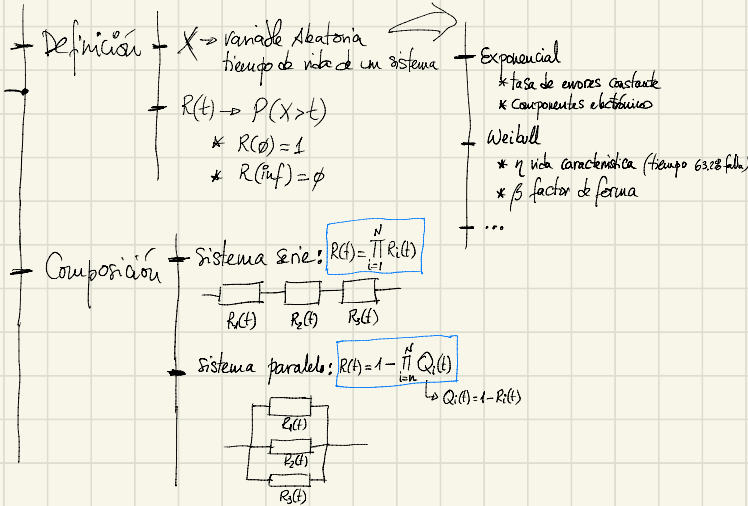 Definición
X → variable Aleatoria
tiempo de vida de un sistema
R(t) → P(X>t)
* R(ø)=1
* R(inf)=ø
Exponencial
* tasa de errores constante
* Componentes electrónico
Weibull
* η vida característica (tiempo 63.2% falla)
* β factor de forma
...
Composición
Sistema serie: R(t)=∏ᵢ₌₁ᴺ Ri(t)
R1(t) R2(t) R3(t)
Sistema paralelo: R(t)=1-∏ᵢ₌ₙᴺ Qi(t)
↳ Qi(t)=1-Ri(t)
R1(t)
R2(t)
R3(t)